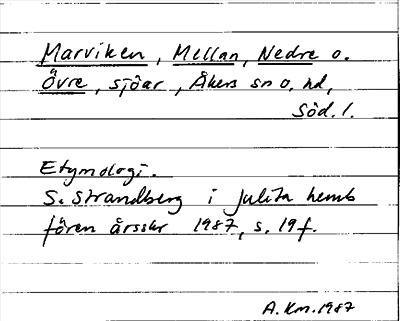 Marviken, Mellan, Nedre o.
Övre, sjöar, Åkers sn o. hd,
Söd. l.
Etymologi.
S. Strandberg i Julita hemb
fören årsskr 1987, s. 19 f.
A. Km. 1987